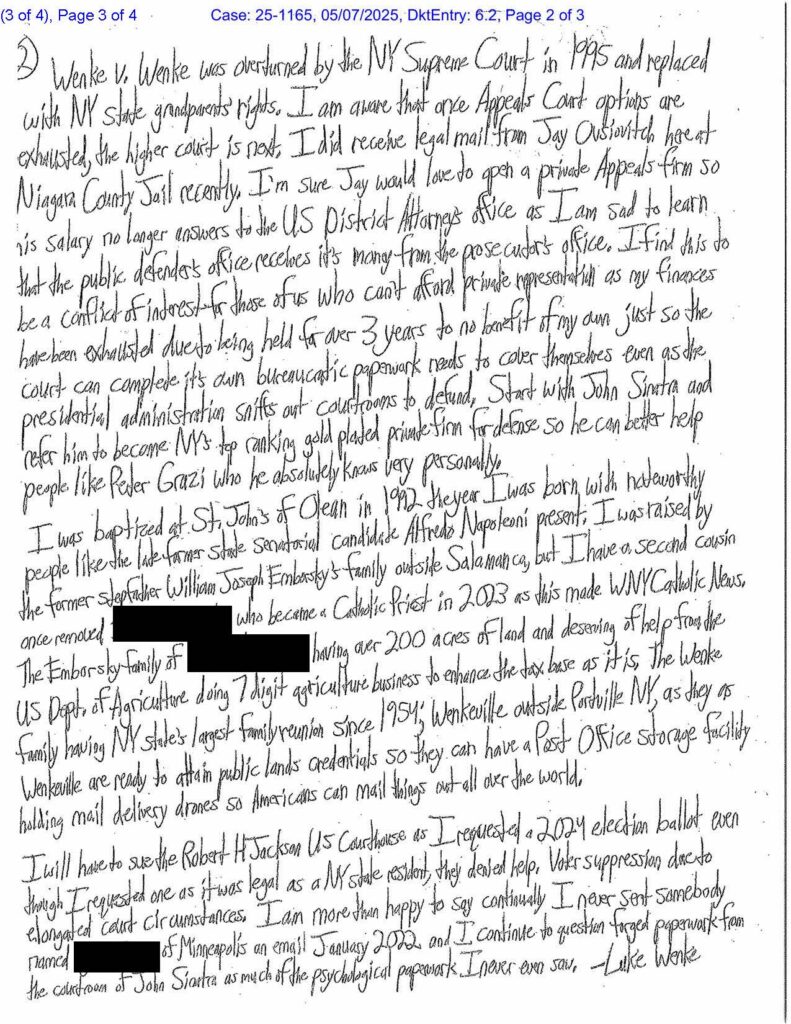 (3 of 4), Page 3 of 4 Case: 25-1165, 05/07/2025, DktEntry: 6.2, Page 2 of 3
2) Wenke v. Wenke was overturned by the NY Supreme Court in 1995 and replaced
with NY state grandparents' rights. I am aware that once Appeals Court options are
exhausted, the higher court is next. I did receive legal mail from Jay Ovsiovitch here at
Niagara County Jail recently. I'm sure Jay would love to open a private Appeals firm so
his salary no longer answers to the US District Attorney's office as I am sad to learn
that the public defender's office receives it's money from the prosecutor's office. I find this to
be a conflict of interest for those of us who can't afford private representation as my finances
have been exhausted due to being held for over 3 years to no benefit of my own just so the
court can complete it's own bureaucratic paperwork needs to cover themselves even as the
presidential administration sniffs out courtrooms to defund. Start with John Sinatra and
refer him to become NY's top ranking gold plated private firm for defense so he can better help
people like Peter Grazi who he absolutely knows very personally.
I was baptized at St. John's of Olean in 1992 the year I was born, with noteworthy
people like the late former state senatorial candidate Alfredo Napoleoni present. I was raised by
the former stepfather William Joseph Emborsky's family outside Salamanca, but I have a second cousin
once removed who became a Catholic Priest in 2023 as this made WNY Catholic News.
The Emborsky family of having over 200 acres of land and deserving of help from the
US Dept. of Agriculture doing 7 digit agriculture business to enhance the tax base as it is. The Wenke
family having NY state's largest family reunion since 1954; Wenkeville outside Portville NY, as they as
Wenkeville are ready to attain public lands credentials so they can have a Post Office storage facility
holding mail delivery drones so Americans can mail things out all over the world.
I will have to sue the Robert H Jackson US Courthouse as I requested a 2024 election ballot even
though I requested one as it was legal as a NY state resident, they denied help. Voter suppression due to
elongated court circumstances. I am more than happy to say continually I never sent somebody
named of Minneapolis an email January 2022 and I continue to question forged paperwork from
the courtroom of John Sinatra as much of the psychological paperwork I never even saw. -Luke Wenke